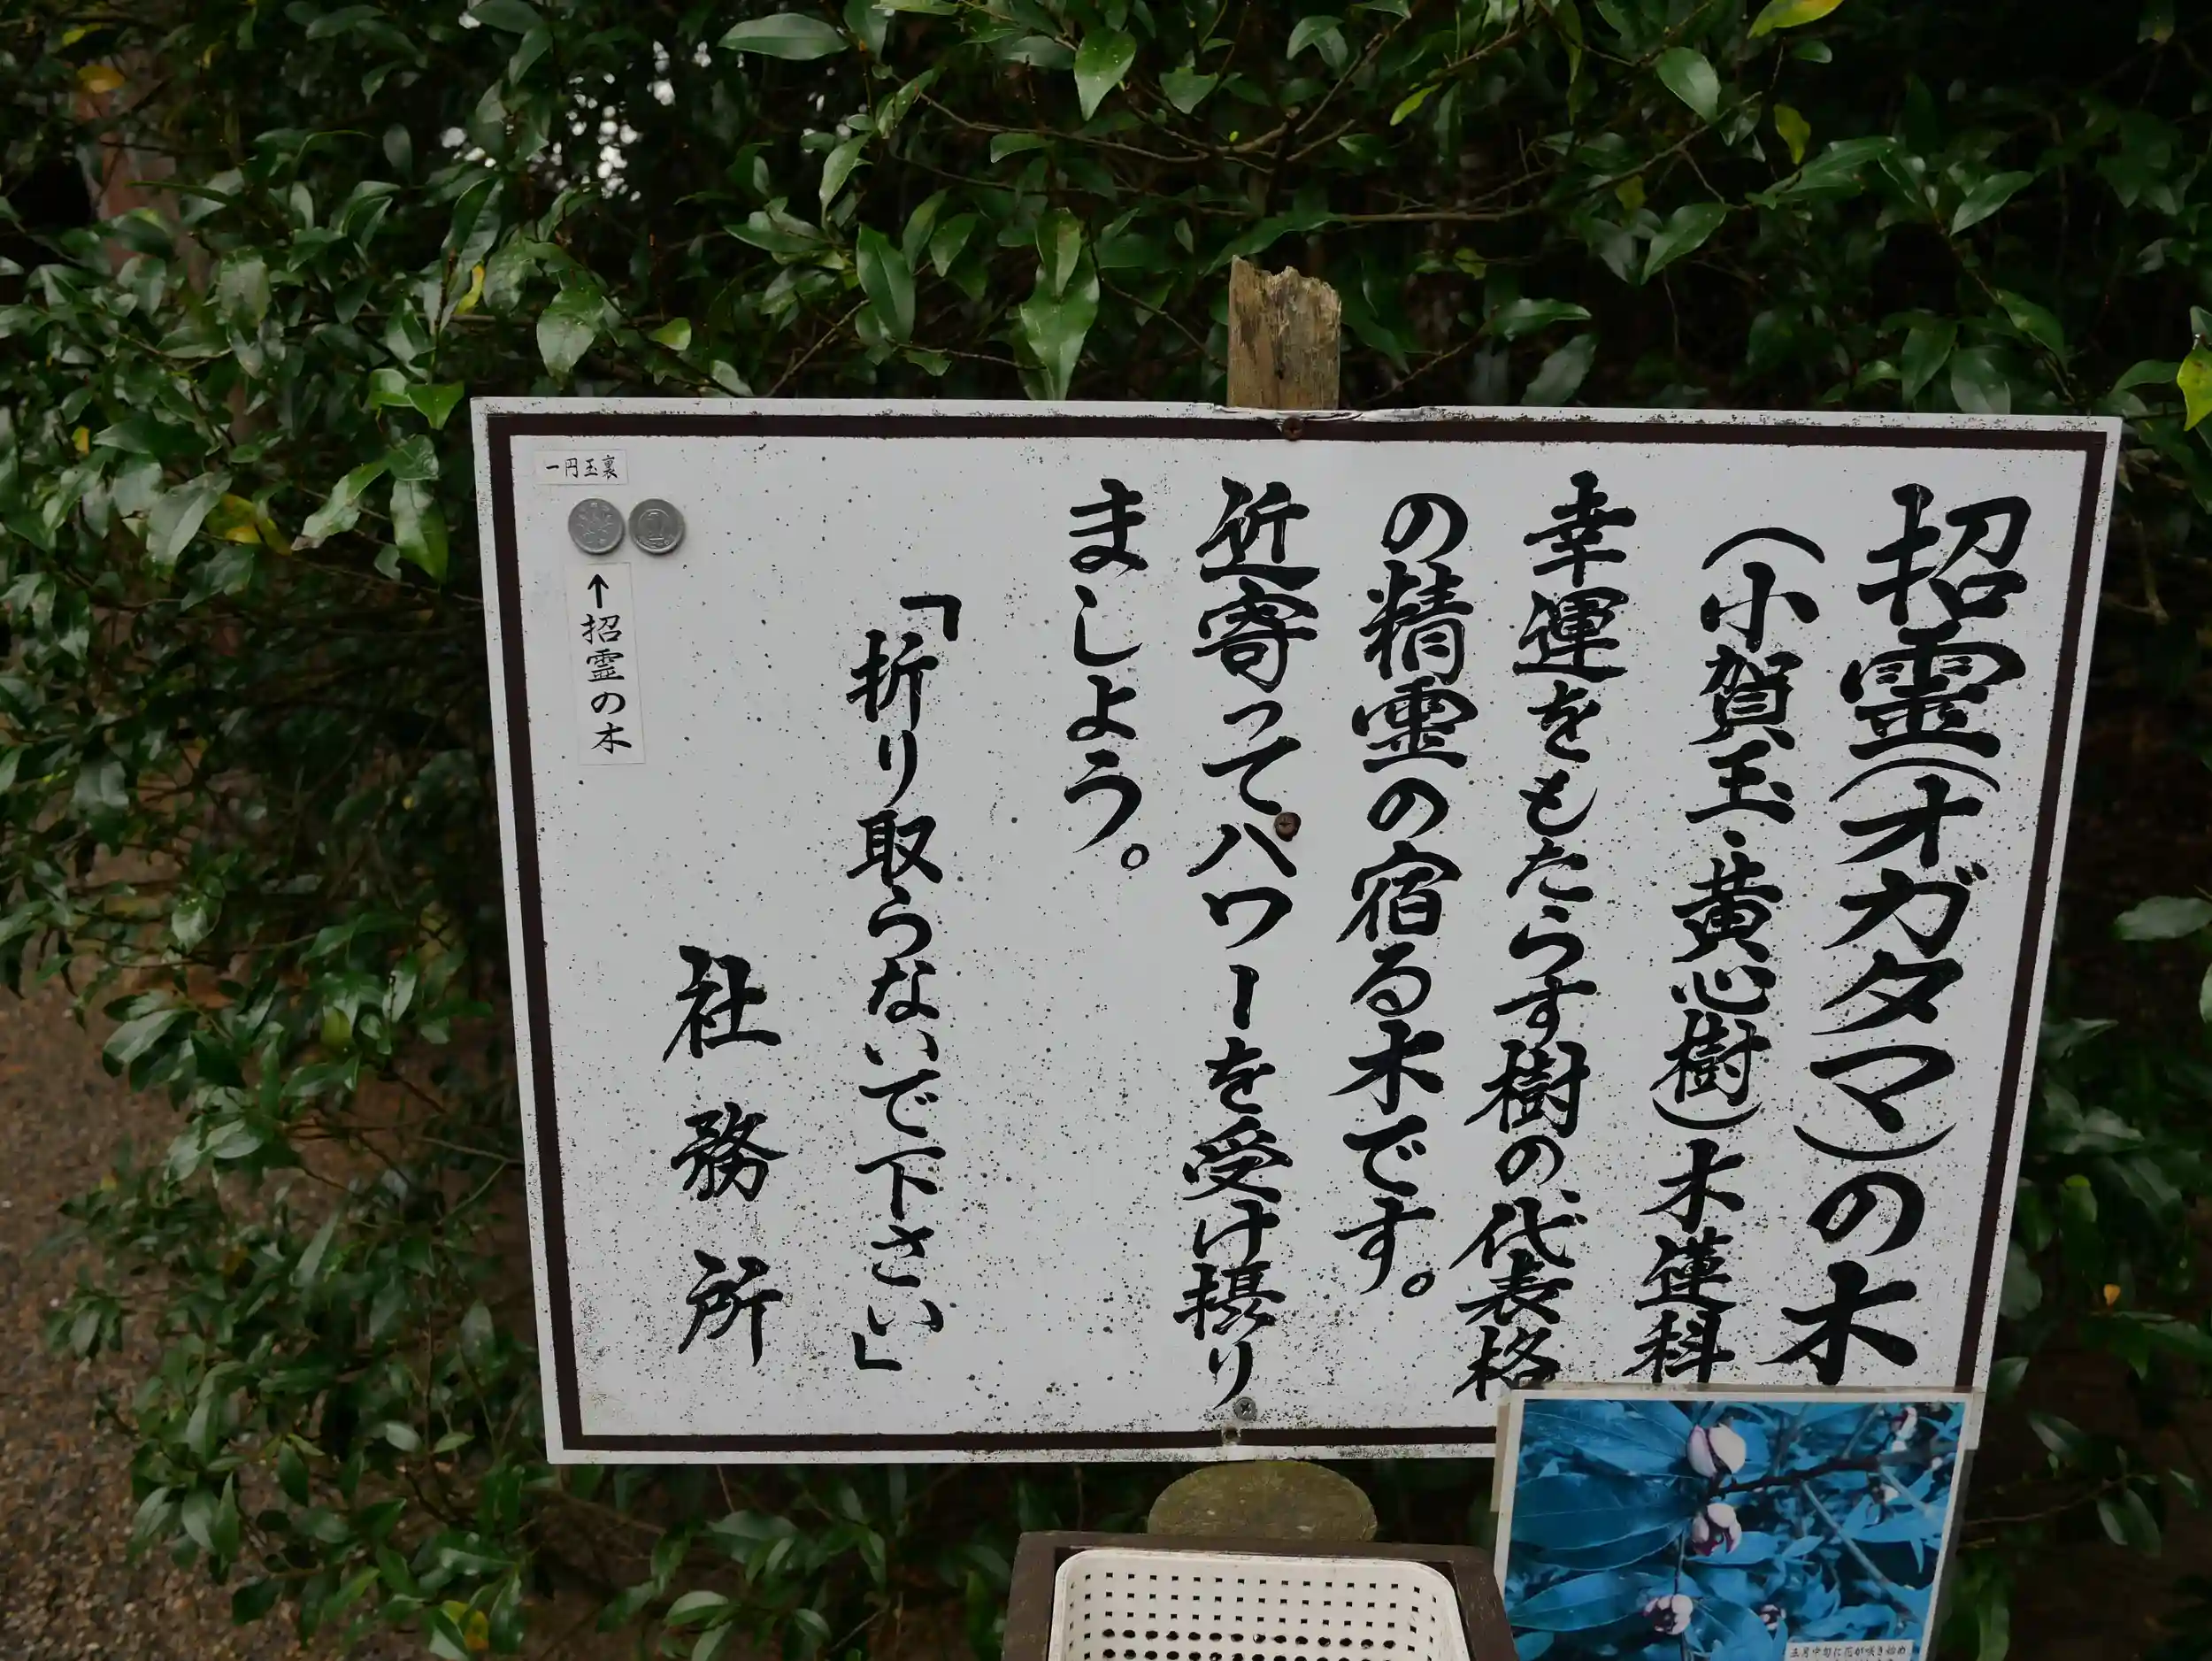 招霊(オガタマ)の木
(小賀玉・黄心樹)木蓮科
幸運をもたらす樹の代表格
の精霊の宿る木です。
近寄ってパワーを受け摂り
ましょう。
「折り取らないで下さい」
社務所
一円玉裏
↑招霊の木
五月中旬に花が咲き始め